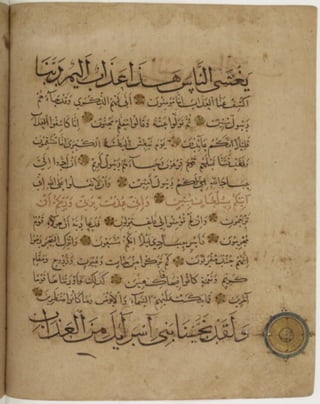 يَغْشَى النَّاسَ هَذَا عَذَابٌ أَلِيمٌ رَبَّنَا
اكْشِفْ عَنَّا الْعَذَابَ إِنَّا مُؤْمِنُونَ أَنَّى لَهُمُ الذِّكْرَى وَقَدْ جَاءَهُمْ
رَسُولٌ مُبِينٌ ثُمَّ تَوَلَّوْا عَنْهُ وَقَالُوا مُعَلَّمٌ مَجْنُونٌ إِنَّا كَاشِفُوا الْعَذَابِ
قَلِيلًا إِنَّكُمْ عَائِدُونَ يَوْمَ نَبْطِشُ الْبَطْشَةَ الْكُبْرَى إِنَّا مُنْتَقِمُونَ
وَلَقَدْ فَتَنَّا قَبْلَهُمْ قَوْمَ فِرْعَوْنَ وَجَاءَهُمْ رَسُولٌ كَرِيمٌ أَنْ أَدُّوا إِلَيَّ
عِبَادَ اللَّهِ إِنِّي لَكُمْ رَسُولٌ أَمِينٌ وَأَنْ لَا تَعْلُوا عَلَى اللَّهِ إِنِّي
آتِيكُمْ بِسُلْطَانٍ مُبِينٍ وَإِنِّي عُذْتُ بِرَبِّي وَرَبِّكُمْ أَنْ
تَرْجُمُونِ وَإِنْ لَمْ تُؤْمِنُوا لِي فَاعْتَزِلُونِ فَدَعَا رَبَّهُ أَنَّ هَؤُلَاءِ قَوْمٌ
مُجْرِمُونَ فَأَسْرِ بِعِبَادِي لَيْلًا إِنَّكُمْ مُتَّبَعُونَ وَاتْرُكِ الْبَحْرَ رَهْوًا
إِنَّهُمْ جُنْدٌ مُغْرَقُونَ كَمْ تَرَكُوا مِنْ جَنَّاتٍ وَعُيُونٍ وَزُرُوعٍ وَمَقَامٍ
كَرِيمٍ وَنَعْمَةٍ كَانُوا فِيهَا فَاكِهِينَ كَذَلِكَ وَأَوْرَثْنَاهَا قَوْمًا
آخَرِينَ فَمَا بَكَتْ عَلَيْهِمُ السَّمَاءُ وَالْأَرْضُ وَمَا كَانُوا مُنْظَرِينَ
وَلَقَدْ نَجَّيْنَا بَنِي إِسْرَائِيلَ مِنَ الْعَذَابِ